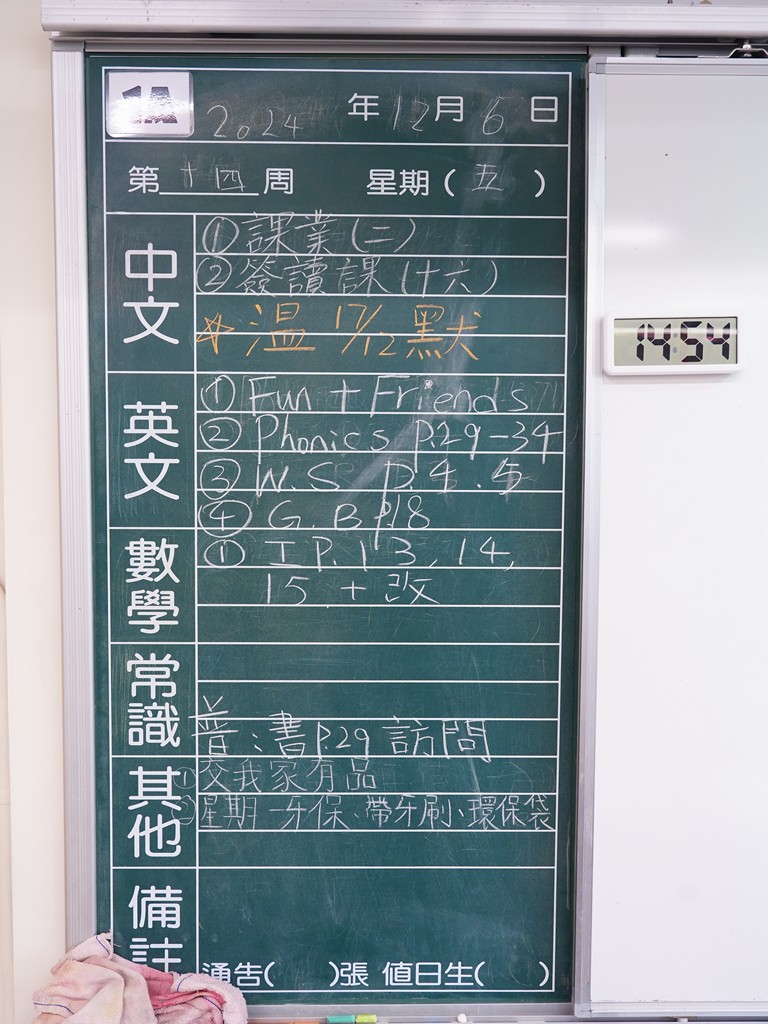 1A 2024 年 12 月 6 日
第 十四 周 星期 ( 五 )
中文
① 課業 (二)
② 簽讀課 (十六)
☆ 溫 17/12 默
英文
① Fun + Friends
② Phonics P.29-34
③ W.S. P.4.5
④ G.B P.18
數學
① I P.13, 14,
15 + 改
常識
普:書P.29 訪問
其他
① 交我家有品
② 星期一牙保、帶牙刷、環保袋
備註
通告( )張 值日生( )
14:54